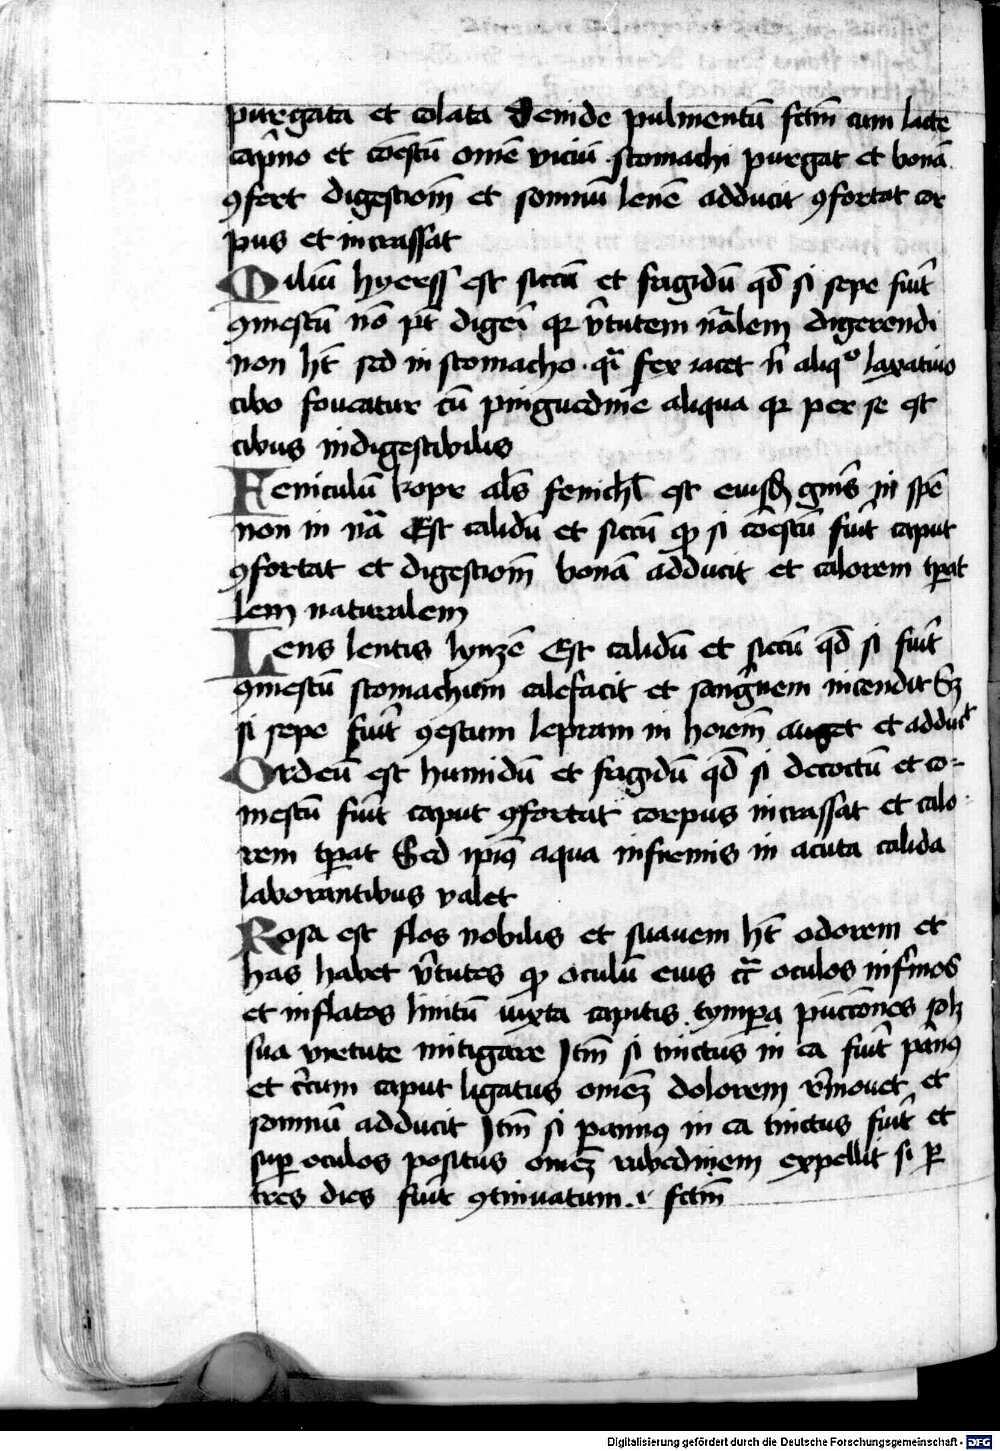 purgata et colata Deinde pulmentū fctm̄ cum lacte
cap̄no et cōestū om̄e viciū stomachi purgat et bonā
ꝯfert digestiom̄ et somnū lenē adducit ꝯfortat cor
pus et incrassat
Miliū hyerss est siccū et frigidū qd̄ si sepe fuit̄
ꝯmestū nō pt̄ digeī qr v̄tutem nāalem digerendi
non ht̄ sed in stomacho qͣ fex iacet n̄ aliqͦ laxatiuo
cibo foueatur cū pinguedīne aliqua qr per se est
cibus indigestibilis
Feniculū kopr als̄ fenichl̄ est eiusdē gn̄is in spē
non in nāͣ Est calidū et siccū qd̄ si cōestū fuit̄ caput
ꝯfortat et digestiom̄ bonā adducit et calorem tꝑat
lem naturalem
Lens lentis lynzē Est calidū et siccū qd̄ si fuit̄
ꝯmestū stomachum calefacit et sangᷓnem incendit Sꝫ
si sepe fuit̄ ꝯestum lepram in hoiem̄ auget et adducit
Ordeū est humidū et frigidū qd̄ si decoctū et co-
mestū fuit̄ caput ꝯfortat corpus incrassat et calo-
rem tꝑat Sed ipiꝰ aqua infirmis in acuta calida
laborantibus valet
Rosa est flos nobilis et suauem ht̄ odorem et
has habet v̄tutes qd̄ oculū eius cͣ oculos infirmos
et inflatos linitū iuxta capitis tymꝑa pūcciones solꝫ
sua virtute mitigare Itm̄ si tinctus in ea fuit̄ pānꝰ
et circum caput ligatus omēꝫ dolorem r̄mouet et
somnū adducit Itm̄ si pannꝰ in ea tinctus fuit̄ et
suꝑ oculos positus omēꝫ rubedinem expellit si ꝑ
tres dies fuit̄ ꝯtinuatum fctm̄
Digitalisierung gefördert durch die Deutsche Forschungsgemeinschaft - DFG